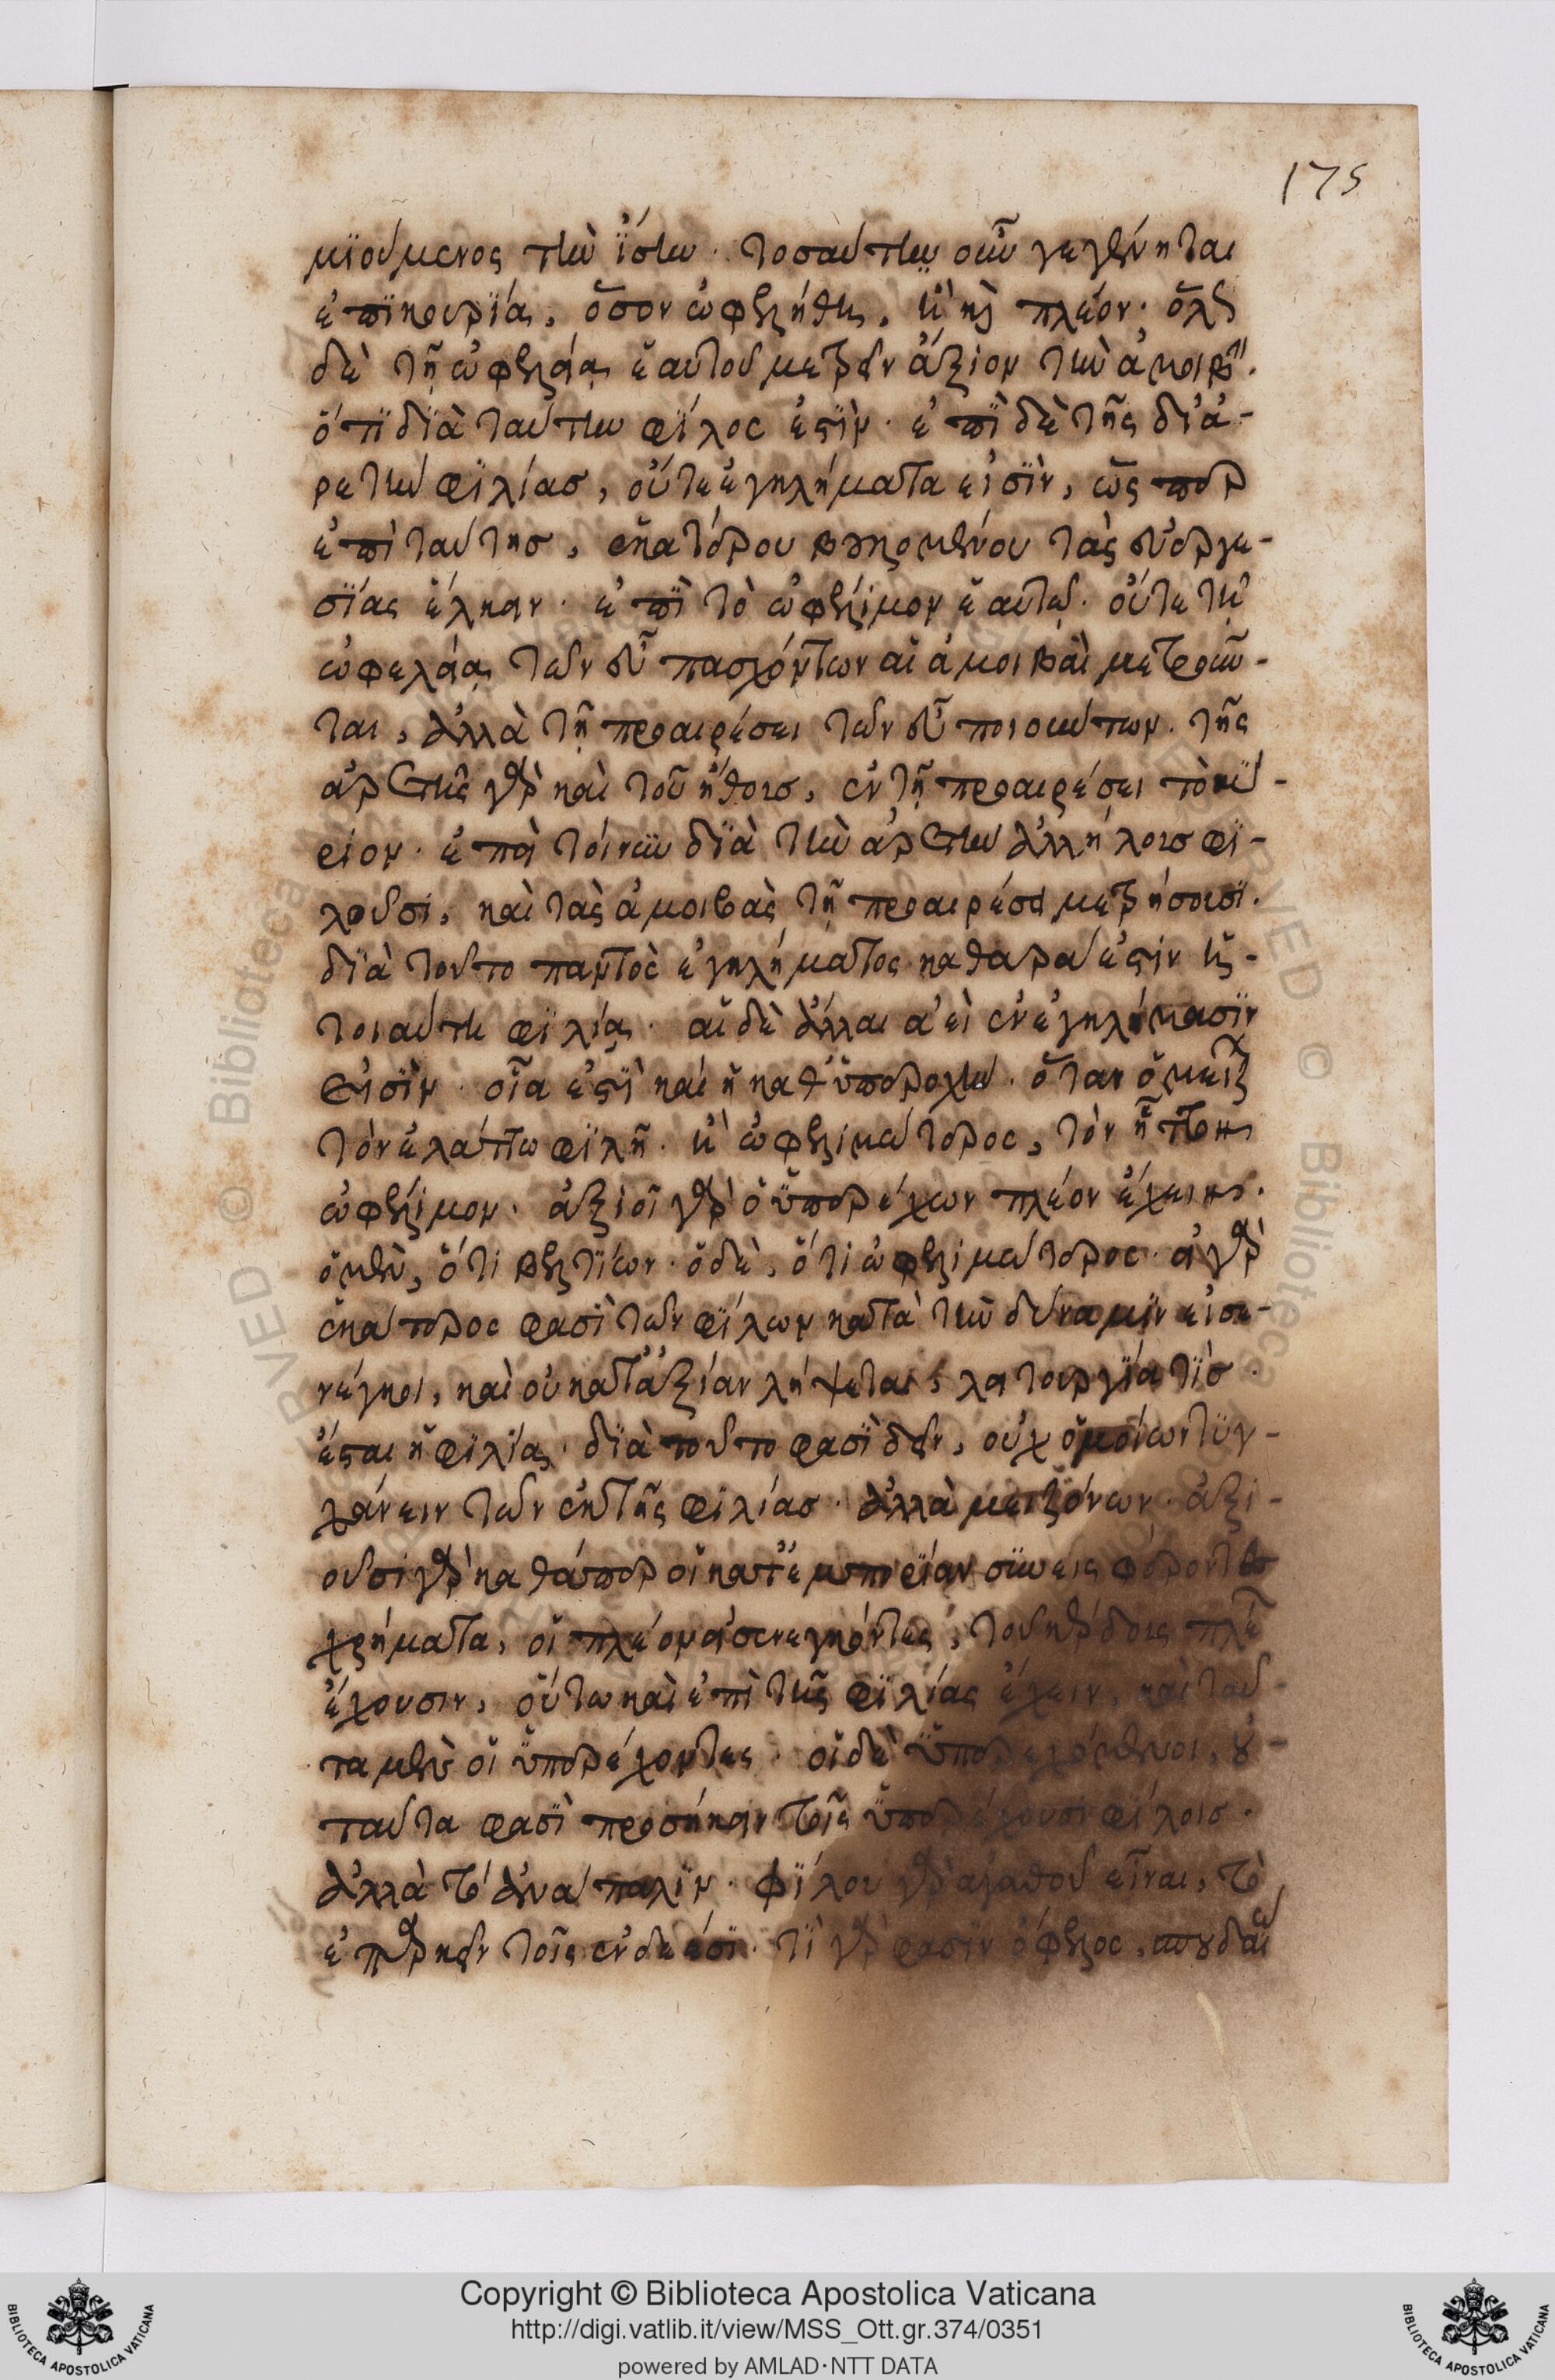 175
μϊούμενος τὴν ἴσην· τοσαύτην οὖν γεγένηται
ἐπϊκουρία, ὅσον ὠφελήθη, ἢ καὶ πλέον· ὅλως
δὲ τῇ ὠφελεία ἑαυτοῦ μετρεῖν ἄξιον τὴν ἀμοιβήν.
ὅτι διὰ ταύτην φίλος ἐστίν· ἐπὶ δὲ τῆς δι' ἀ-
ρετὴν φιλίασ, οὔτε ἐγκλήματα εἰσὶν, ὥσπερ
ἐπὶ ταύτησ, ἑκατέρου βουλομένου τὰς εὐεργε-
σίας ἕλκειν· ἐπὶ τὸ ὠφέλιμον ἑαυτῶ· οὔτε τῆ
ὠφελεία τῶν εὖ πασχόντων αἱ ἀμοιβαὶ μετροῦν-
ται, ἀλλὰ τῇ προαιρέσει τῶν εὖ ποιούντων· τῆς
ἀρετῆς γὰρ καὶ τοῦ ἤθουσ, ἐν τῇ προαιρέσει τὸ κύ-
ριον· ἐπεὶ τοίνυν διὰ τὴν ἀρετὴν ἀλλήλουσ φι-
λοῦσι, καὶ τὰς ἀμοιβὰς τῇ προαιρέσει μετρήσουσι.
διὰ τοῦτο παντὸς ἐγκλήματος καθαρά ἐστιν ἡ
τοιαύτη φιλία· αἱ δὲ ἄλλαι ἀεὶ ἐν ἐγκλήμασιν
εἰσὶν· οἷα ἐστὶ καὶ ἡ καθ' ὑπεροχήν· ὅταν ὁ μείζων
τὸν ἐλάττω φιλῇ· ἢ ὠφελιμώτερος, τὸν ἧττον
ὠφέλιμον· ἀξιοῖ γὰρ ὁ ὑπερέχων πλέον ἔχειν.
ὁ μὲν, ὅτι βελτίων· ὁ δὲ, ὅτι ὠφελιμώτερος· εἰ γὰρ
ἑκάτερος φασὶ τῶν φίλων κατὰ τὴν δύναμιν εἰσε-
νέγκοι, καὶ οὐ κατ' ἀξίαν λήψεται, λειτουργία τίσ
ἔσται ἡ φιλία· διὰ τοῦτο φασὶ δεῖν, οὐχ ὁμοίων τυγ-
χάνειν τῶν ἐκ τῆς φιλίασ· ἀλλὰ μειζόνων· ἀξι-
οῦσι γὰρ καθάπερ οἱ κατ' ἐμπορίαν συνεισφέροντες
χρήματα, οἱ πλέον εἰσενεγκόντες, τοῦ κέρδους πλέον
ἔχουσιν, οὕτω καὶ ἐπὶ τῆς φιλίας ἔχειν, καὶ ταῦ-
τα μὲν οἱ ὑπερέχοντες· οἱ δὲ ὑπερεχόμενοι, οὐ
ταῦτα φασὶ προσήκειν τοῖς ὑπερέχουσι φίλοισ·
ἀλλὰ τὸ ἀνάπαλιν· φίλου γὰρ ἀγαθοῦ εἶναι, τὸ
ἐπαρκεῖν τοῖς ἐνδεέσι· τί γὰρ φασὶν ὄφελος, σπουδαίω
Copyright © Biblioteca Apostolica Vaticana
http://digi.vatlib.it/view/MSS_Ott.gr.374/0351
powered by AMLAD·NTT DATA
BIBLIOTECA APOSTOLICA VATICANA
BIBLIOTECA APOSTOLICA VATICANA